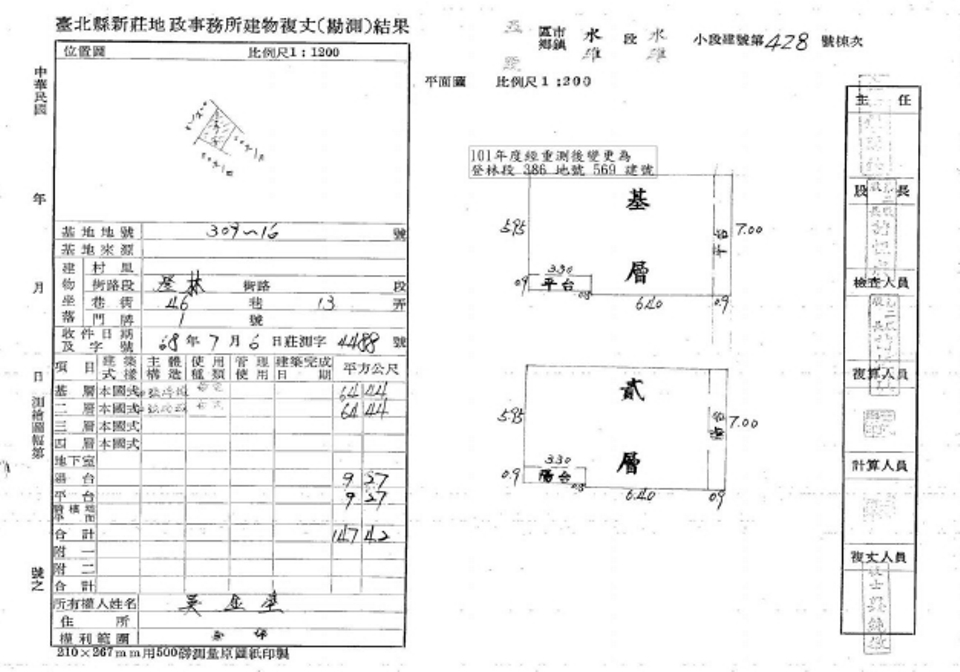 臺北縣新莊地政事務所建物複丈(勘測)結果
位置圖 比例尺1:1200
中華民國 年 月 日 測繪圖幅第 號之
基地地號 309~16 號
基地來源
建物坐落
村里
街路段 登林 街路 段
巷衖 46 巷 13 弄
門牌 1 號
收件日期及字號 68年7月6日莊測字4488號
項目 建築式樣 主體構造 使用種類 管理使用 建築完成日期 平方公尺
基層 本國式 64 44
二層 本國式 64 44
三層 本國式
四層 本國式
地下室
陽台 9 57
平台 9 57
騎樓地平面
合計 147 42
附一
附二
合計
所有權人姓名
住所
權利範圍
210×267mm用500磅測量原圖紙印製
區市鄉鎮 水碓 段 水碓 小段建號第428號棟次
平面圖 比例尺1:200
101年度經重測後變更為
登林段 386 地號 569 建號
基層
5.95
平台
7.00
3.30
0.9 平台 0.5
6.40 0.9
貳層
5.95
7.00
3.30
0.9 陽台 0.5
6.40 0.9
主任
股長
檢查人員
複算人員
計算人員
複丈人員